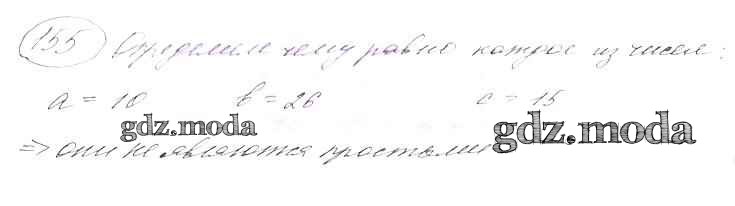 155 Определим чему равно каждое из чисел:
a = 10 b = 26 c = 15
gdz.moda gdz.moda
=> они не являются простыми